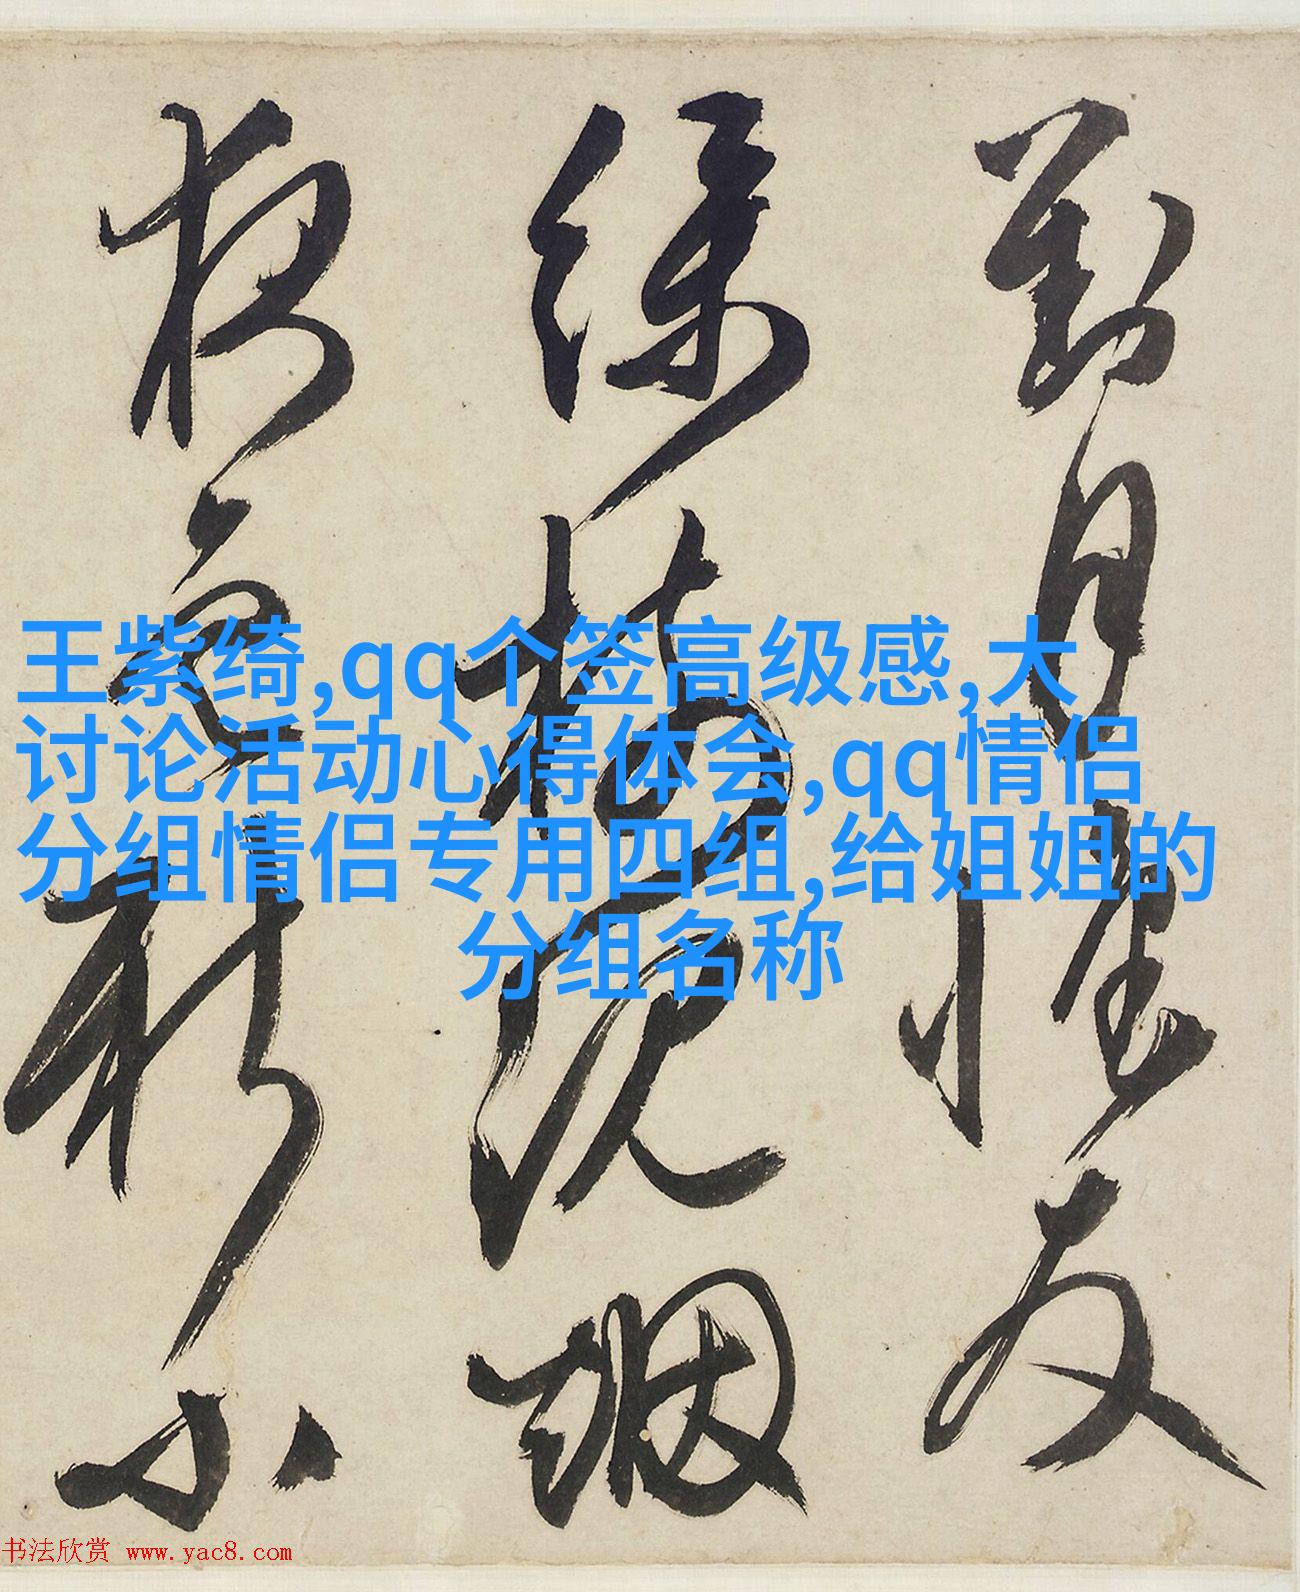 王紫绮,qq个签高级感,大
讨论活动心得体会,qq情侣
分组情侣专用四组,给姐姐的
分组名称
對月懷友
綠 烟
書法欣赏 www.yac8.com